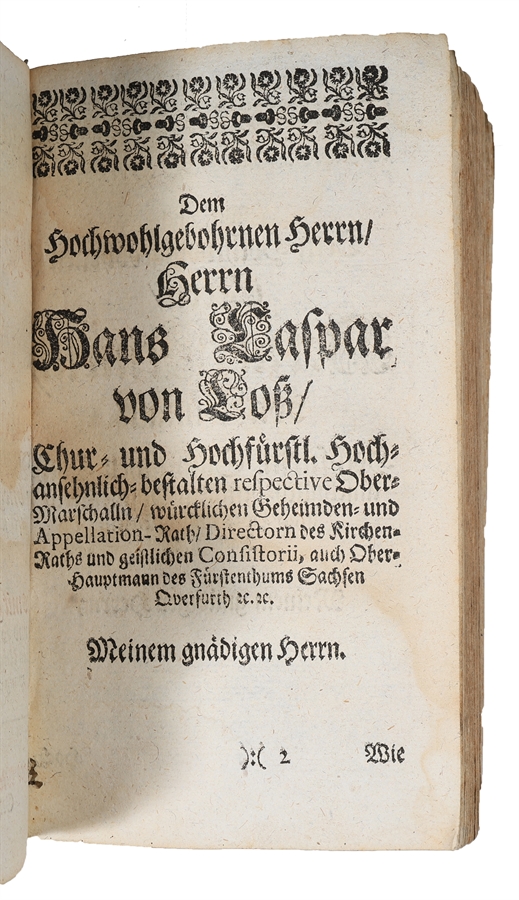 Dem
Hochwohlgebohrnen Herrn/
Herrn
Hans Caspar
von Loß/
Chur- und Hochfürstl. Hoch-
ansehnlich-bestalten respective Ober-
Marschalln/ würcklichen Geheimden- und
Appellation-Rath/ Directorn des Kirchen-
Raths und geistlichen Consistorii, auch Ober-
Hauptmann des Fürstenthums Sachsen
Qverfurth ꝛc. ꝛc.
Meinem gnädigen Herrn.
):( 2 Wie